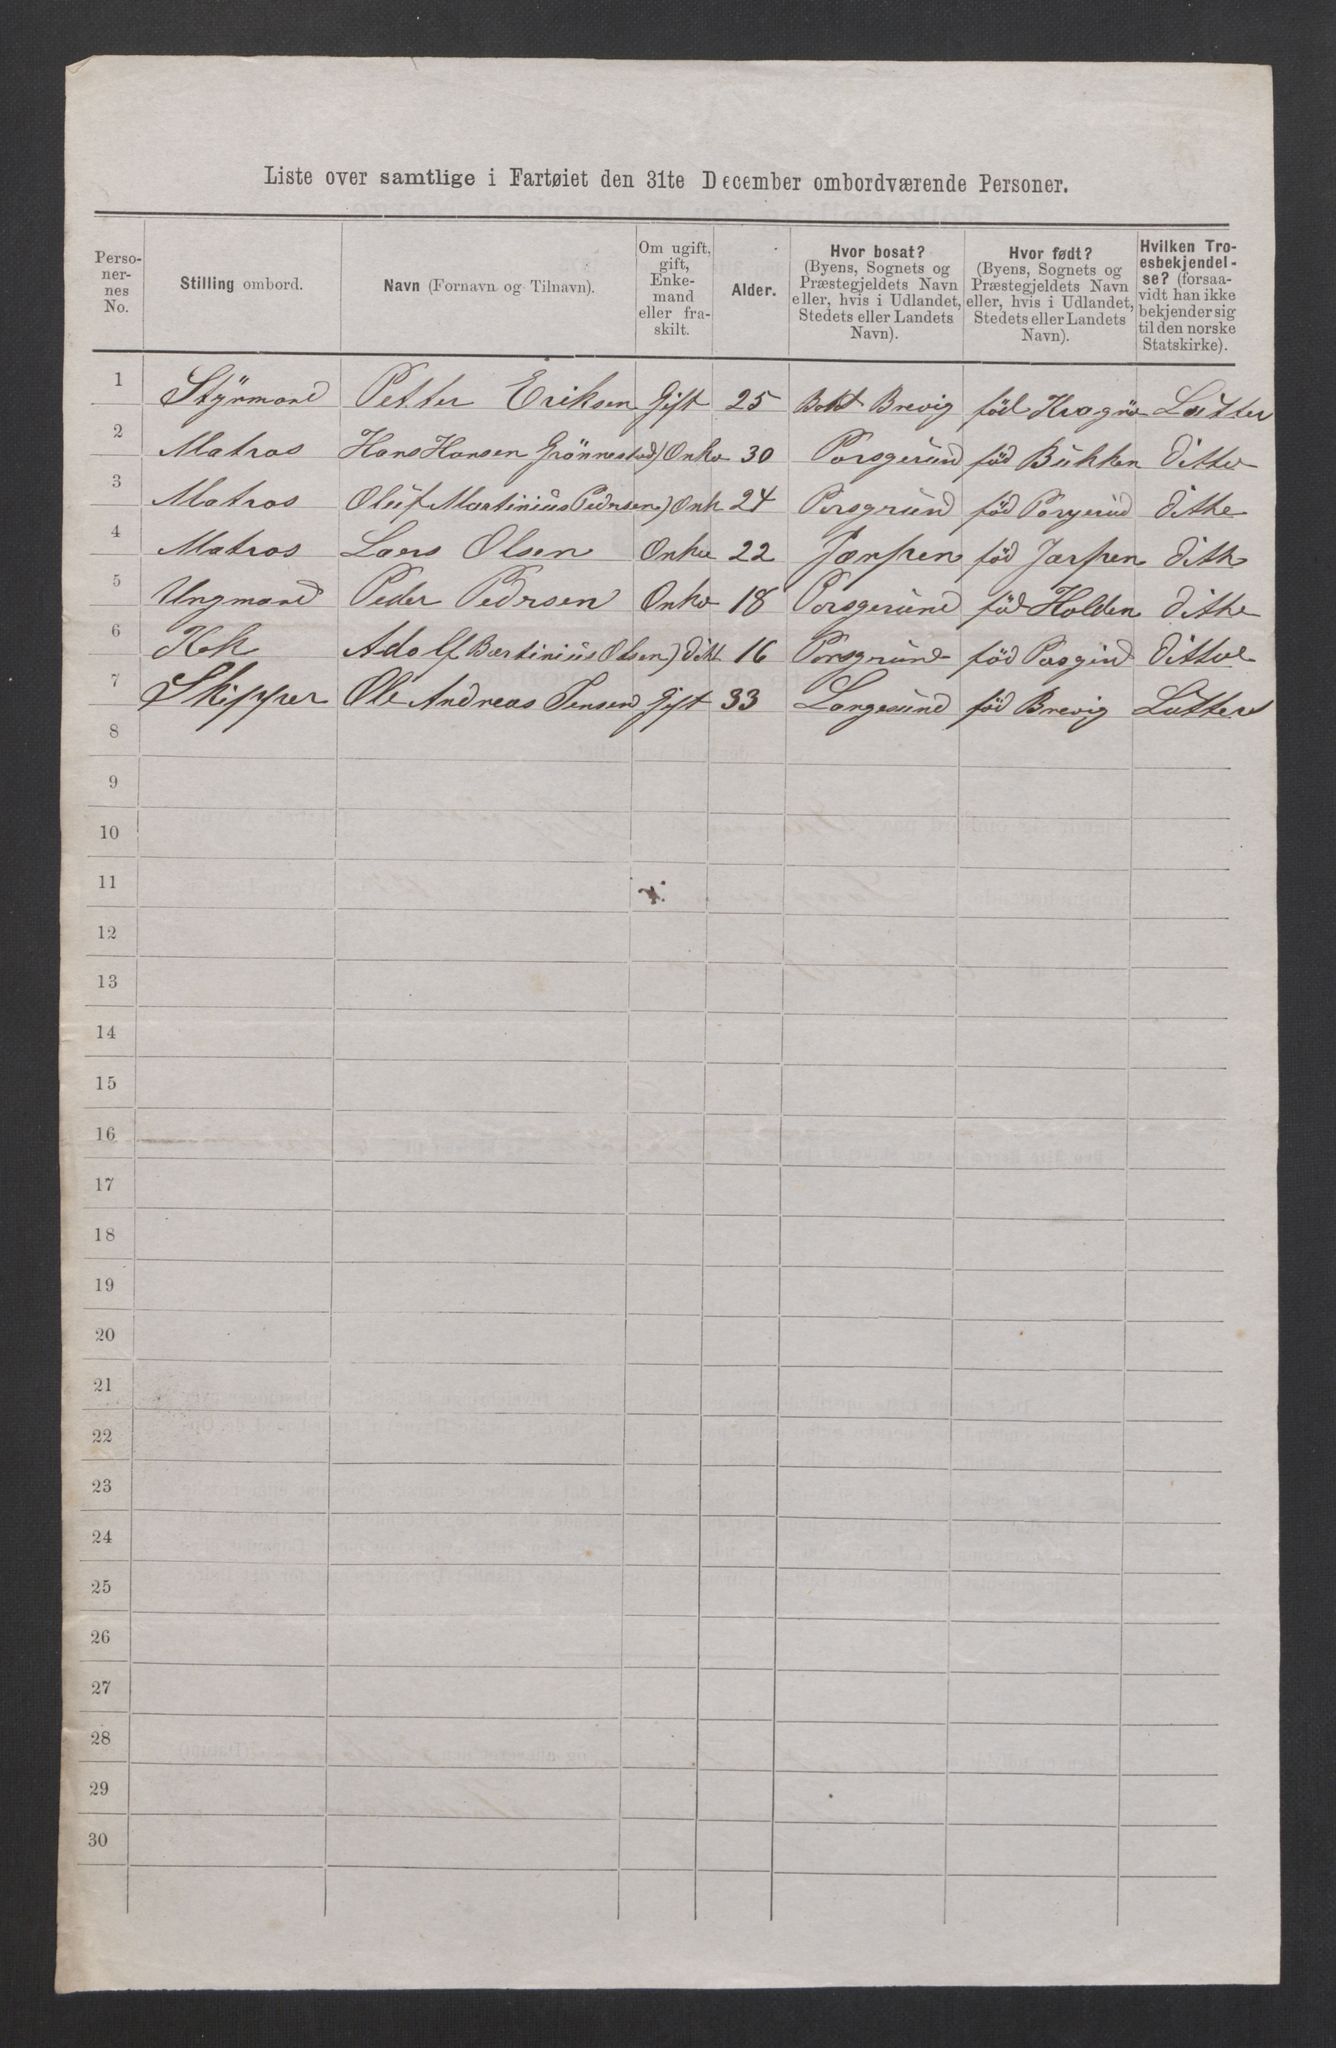 Liste over samtlige i Fartøiet den 31te December ombordværende Personer.
Perso-
ner-
nes
No.
Stilling ombord.
Navn (Fornavn og Tilnavn).
Om ugift,
gift,
Enke-
mand
eller fra-
skilt.
Alder.
Hvor bosat?
(Byens, Sognets og
Præstegjeldets Navn
eller, hvis i Udlandet,
Stedets eller Landets
Navn).
Hvor født?
(Byens, Sognets og
Præstegjeldets Navn
eller, hvis i Udlandet,
Stedets eller Landets
Navn).
Hvilken Tro-
esbekjendel-
se? (forsaa-
vidt han ikke
bekjender sig
til den norske
Statskirke).
1 Styrmand Petter Eriksen Gift 25 Brevig fød Lutter
2 Matros Hans Hansen Grönnestad) Onke 30 Porsgerund fød Bukken ditto
3 Matros Oluf Martinius Pedrsen) Onk 24 Porsgrund fød ditte
4 Matros Lars Olsen Onke 22 Jærpen fød Jarpen ditte
5 Ungmand Peder Pedrsen Onke 18 Porsgerund fød Holden ditte
6 Kok Adolf Bertinius Olsen) ditt 16 Porsgrund fød ditto
7 Skipper Ole Andreas Jensen Gift 33 Langesund fød Brevig Lutters
8
9
10
11
12
13
14
15
16
17
18
19
20
21
22
23
24
25
26
27
28
29
30